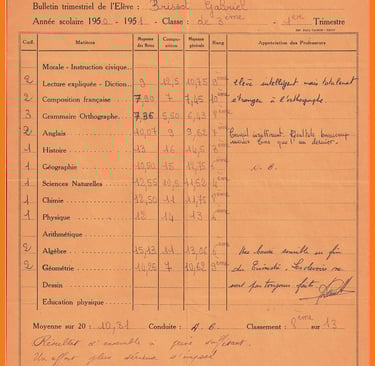 Bulletin trimestriel de l'Élève : Brisod Gabriel
Année scolaire 1950 - 1951 - Classe : de 3ème - 1er Trimestre
Coef. Matières Moyenne des Notes Compo- sition Moyenne générale Rang Appréciation des Professeurs
Morale - Instruction civique
2 Lecture expliquée - Diction 9 12,5 10,75 élève intelligent mais totalement
2 Composition française 7,90 7 7,45 étranger à l'orthographe.
3 Grammaire Orthographe 7,36 5,50 6,43
2 Anglais 10,07 9 9,62 Travail insuffisant. Résultats beaucoup
moins bons que l'an dernier.
1 Histoire 13 16 14,5
1 Géographie 15 A. B.
1 Sciences Naturelles 12,55 11,52
1 Chimie 12,50 11 11,75
1 Physique 12 14 13
Arithmétique
2 Algèbre 15,13 11 13,06 Une baisse sensible en fin
2 Géométrie 14,25 7 10,62 du Trimestre. Les devoirs ne
Dessin sont pas toujours faits.
Education physique
Moyenne sur 20 : 10,31 Conduite : A. B. Classement : 8ème sur 13
Résultat d'ensemble à peine suffisant.
Un effort plus sérieux s'impose